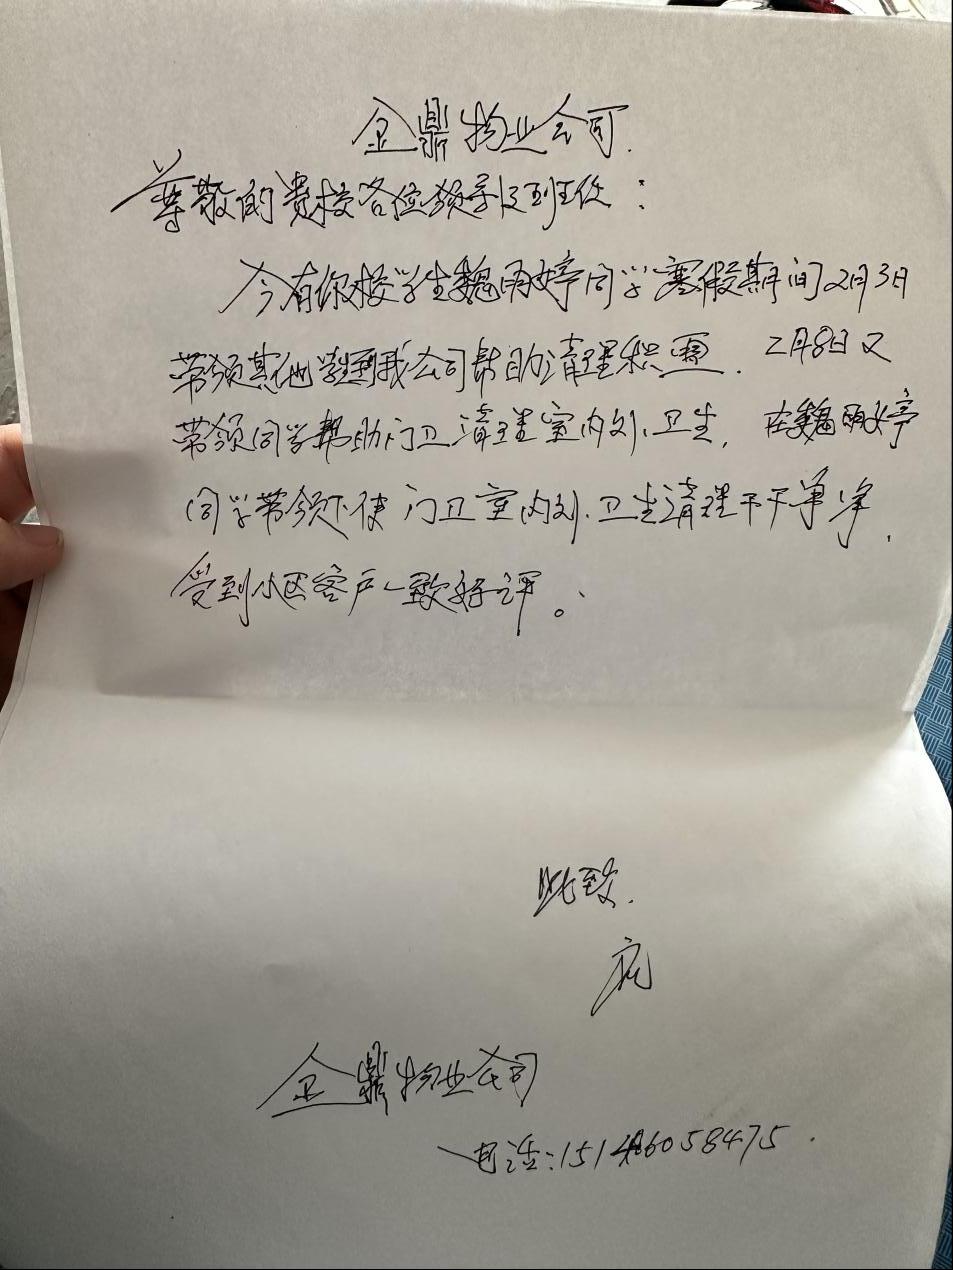 金鼎物业公司.
尊敬的贵校各位领导及班主任:
今有你校学生魏明婷同学寒假期间2月3日
带领其他学生到我公司帮助清理积雪. 2月8日又
带领同学帮助门卫清理室内外卫生, 在魏明婷
同学带领下使门卫室内外卫生清理干干净净,
受到小区客户一致好评。
此致.
金鼎物业公司
电话:151486058475.